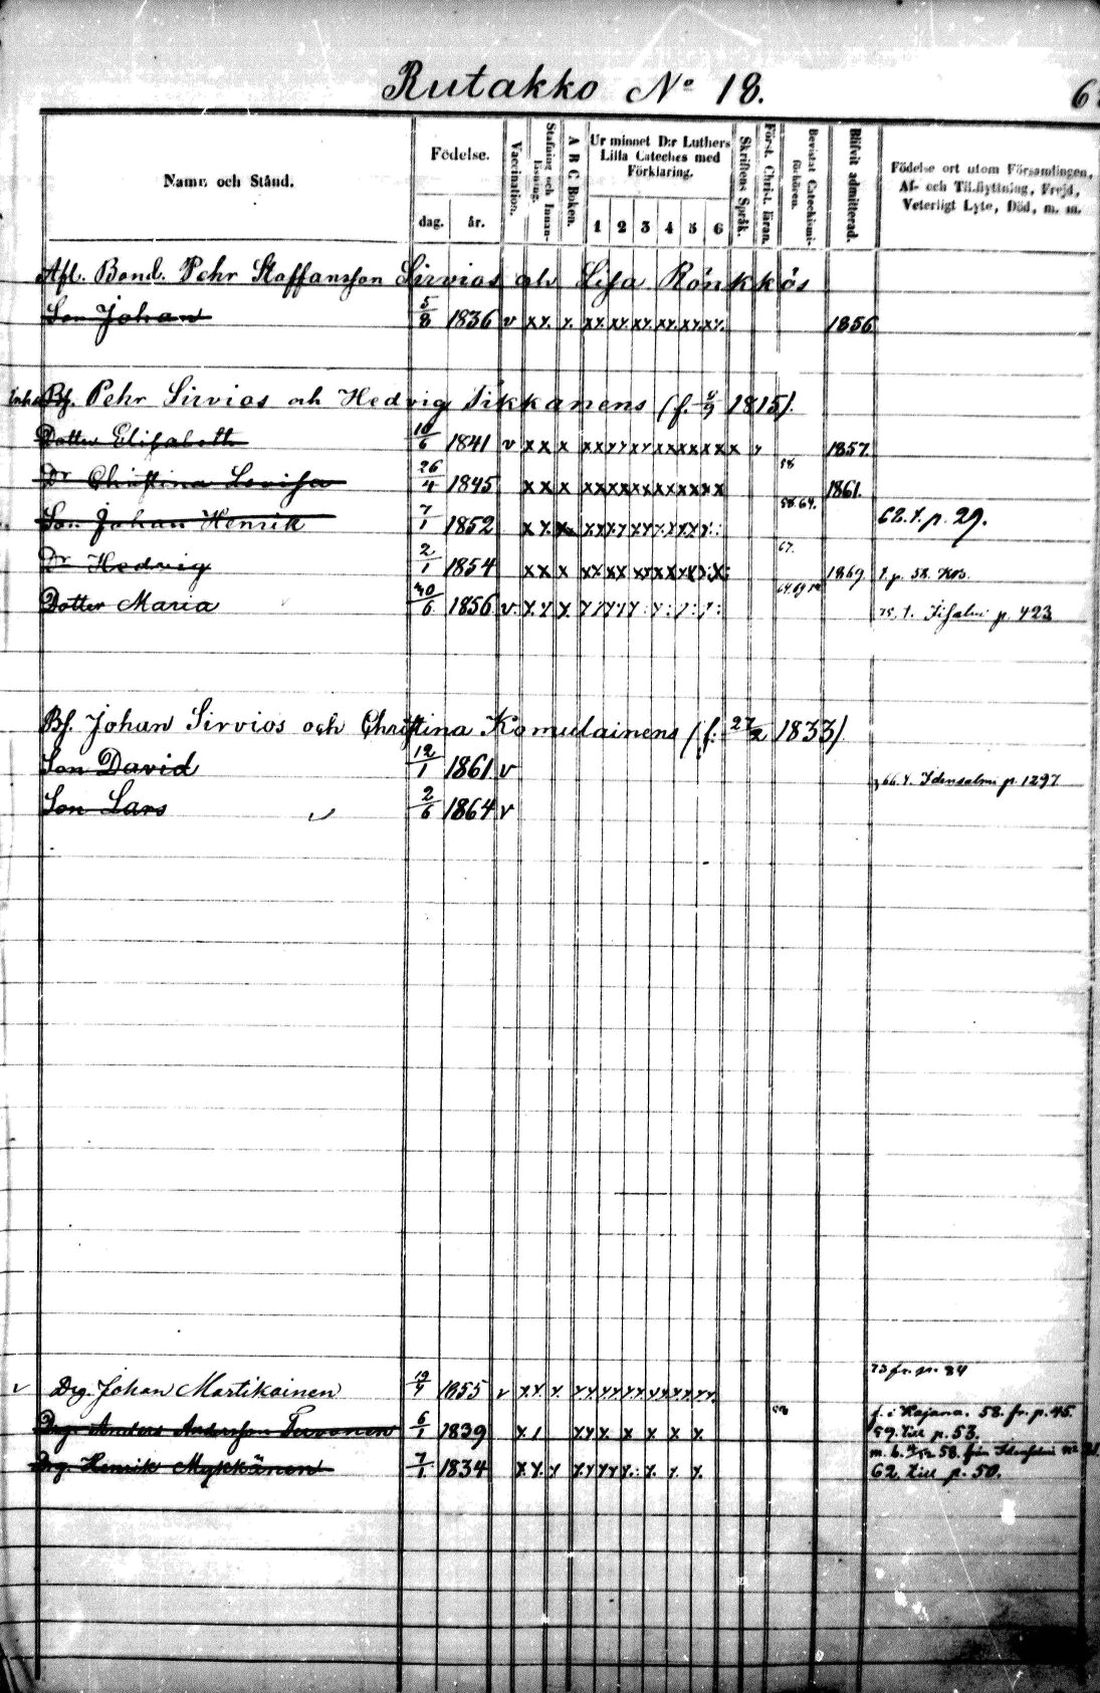 Rutakko No 18.
6
Namn och Stånd.
Födelse.
dag.
år.
Vaccination.
Stafning och Innan-läsning.
A B C Boken.
Ur minnet D:r Luthers
Lilla Cateches med
Förklaring.
1 2 3 4 5 6
Skriftens Språk.
Först. Christ. läran.
Bevistat Catechismi-förhören.
Blifvit admitterad.
Födelse ort utom Församlingen,
Af- och Tillflyttning, Frejd,
Veterligt Lyte, Död, m. m.
Afl. Bond. Pehr Staffansson Sirvios och Lisa Rönkkös
Son Johan 5/8 1836 v x x. x. x x. x x. x x. x x. x x. x x. 1856
Bf. Pehr Sirvios och Hedvig Tikkanens (f. 1815).
Dotter Elisabeth 10/6 1841 v x x x x x y y x y x x x x x x x y 1857
58
Dr Christina Lovisa 26/4 1845 x x x x x x x x x x x x x x x 1861.
58.64.
Son Johan Henrik 7/1 1852 62. t. p. 29.
67.
Dr Hedvig 2/1 1854 x x x x x x x x x x x 1869 t. p. 58.
Dotter Maria 30/6 1856 v. 75. t. Iisalmi p. 423
Bf. Johan Sirvios och Christina Komulainens (f. 27/2 1833).
Son David 12/1 1861 v
66. t. Idensalmi p. 1297
Son Lars 2/6 1864 v
73 fr. p. 84
v Drg. Johan Martikainen 1855 v
58
Drg. Anders Andersson Tuvonen 6/1 1839 f. i Kajana. 58. fr. p. 45.
59. till p. 53.
Drg. Henrik Mykkänen 7/1 1834 m. b. 58. från
62. till p. 50.